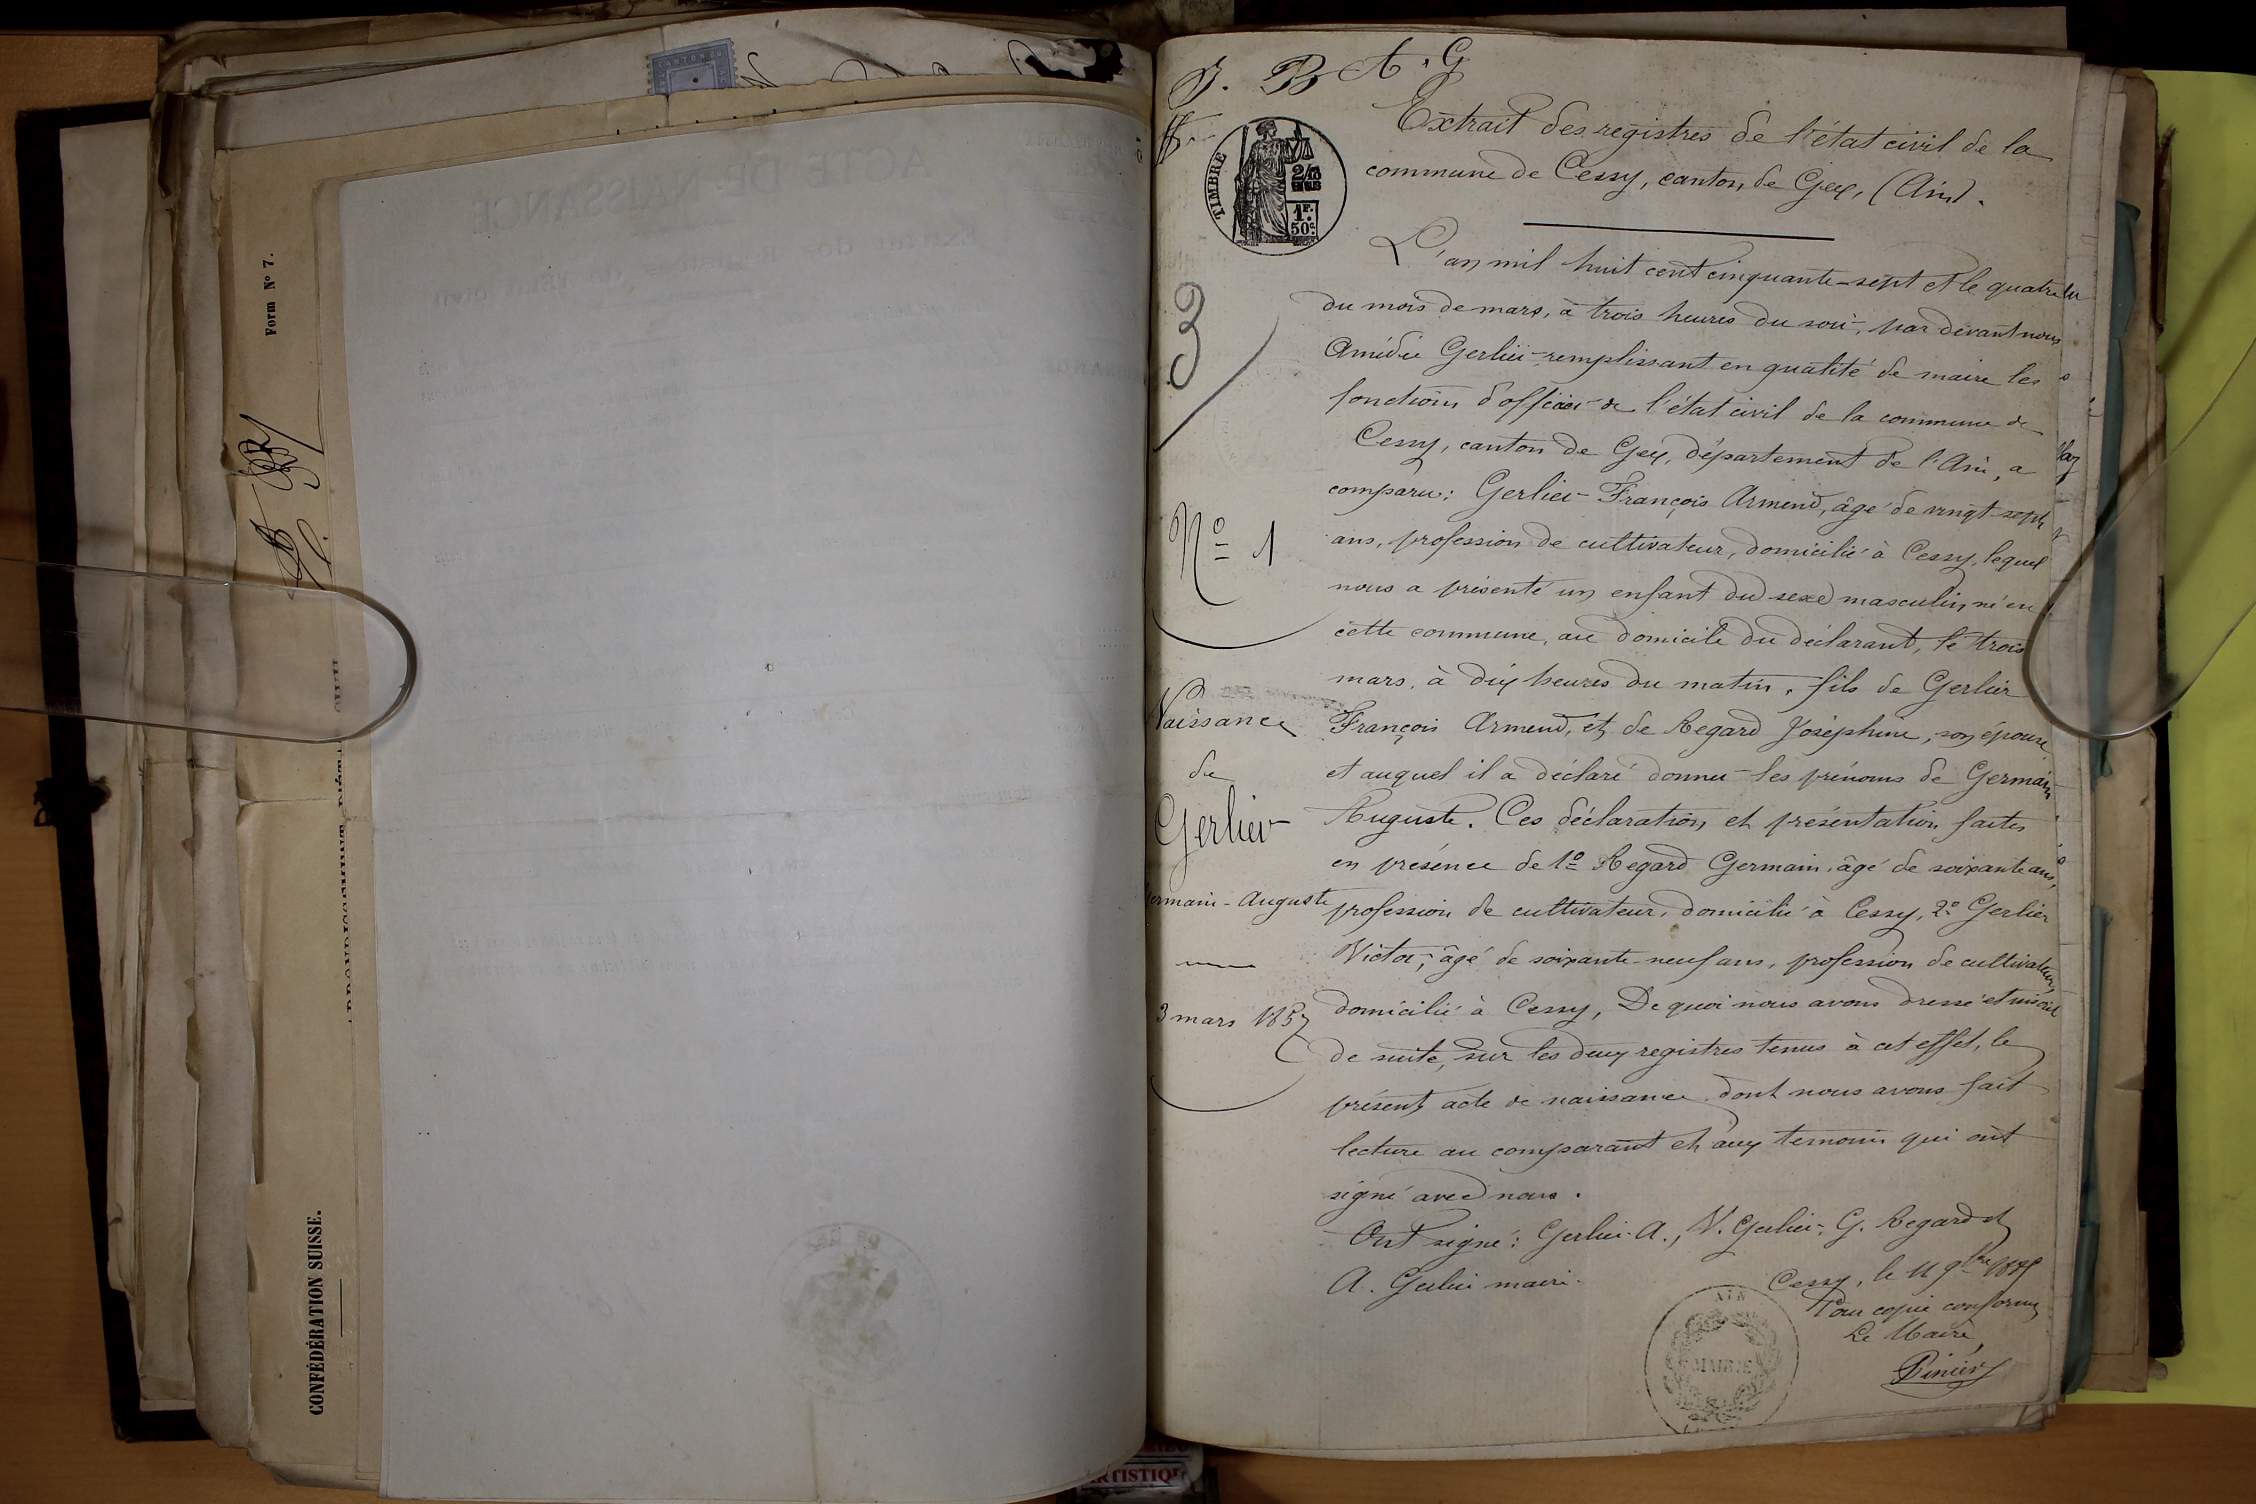 Form Nº 7.
CONFÉDÉRATION SUISSE.
J. B A. G
TIMBRE
2/10
EN SUS
1F.
50c.
3
Extrait des registres de l'état civil de la
commune de Cessy, canton de Gex, (Ain).
L'an mil huit cent cinquante-sept et le quatre
du mois de mars, à trois heures du soir, par devant nous
Amédée Gerlier remplissant en qualité de maire les
fonctions d'officier de l'état civil de la commune de
Cessy, canton de Gex, département de l'Ain, a
comparu: Gerlier François Armend, âgé de vingt-sept
ans, profession de cultivateur, domicilié à Cessy, lequel
nous a présenté un enfant du sexe masculin, né en
cette commune, au domicile du déclarant, le trois
mars, à dix heures du matin, fils de Gerlier
François Armend, et de Regard Joséphine, son épouse
et auquel il a déclaré donner les prénoms de Germain
Auguste. Ces déclaration et présentation faites
en présence de 1º Regard Germain, âgé de soixante ans,
profession de cultivateur, domicilié à Cessy, 2º Gerlier
Victor, âgé de soixante-neuf ans, profession de cultivateur,
domicilié à Cessy, De quoi nous avons dressé et inscrit
de suite, sur les deux registres tenus à cet effet, le
présent acte de naissance dont nous avons fait
lecture au comparant et aux temoins qui ont
signé avec nous.
Ont signé: Gerlier A., V. Gerlier, G. Regard et
A. Gerlier maire.
Nº 1
Naissance
de
Gerlier
Germain-Auguste
3 mars 1857
Cessy, le 11 9bre
Pour copie conforme
Le Maire,
AIN
MAIRIE